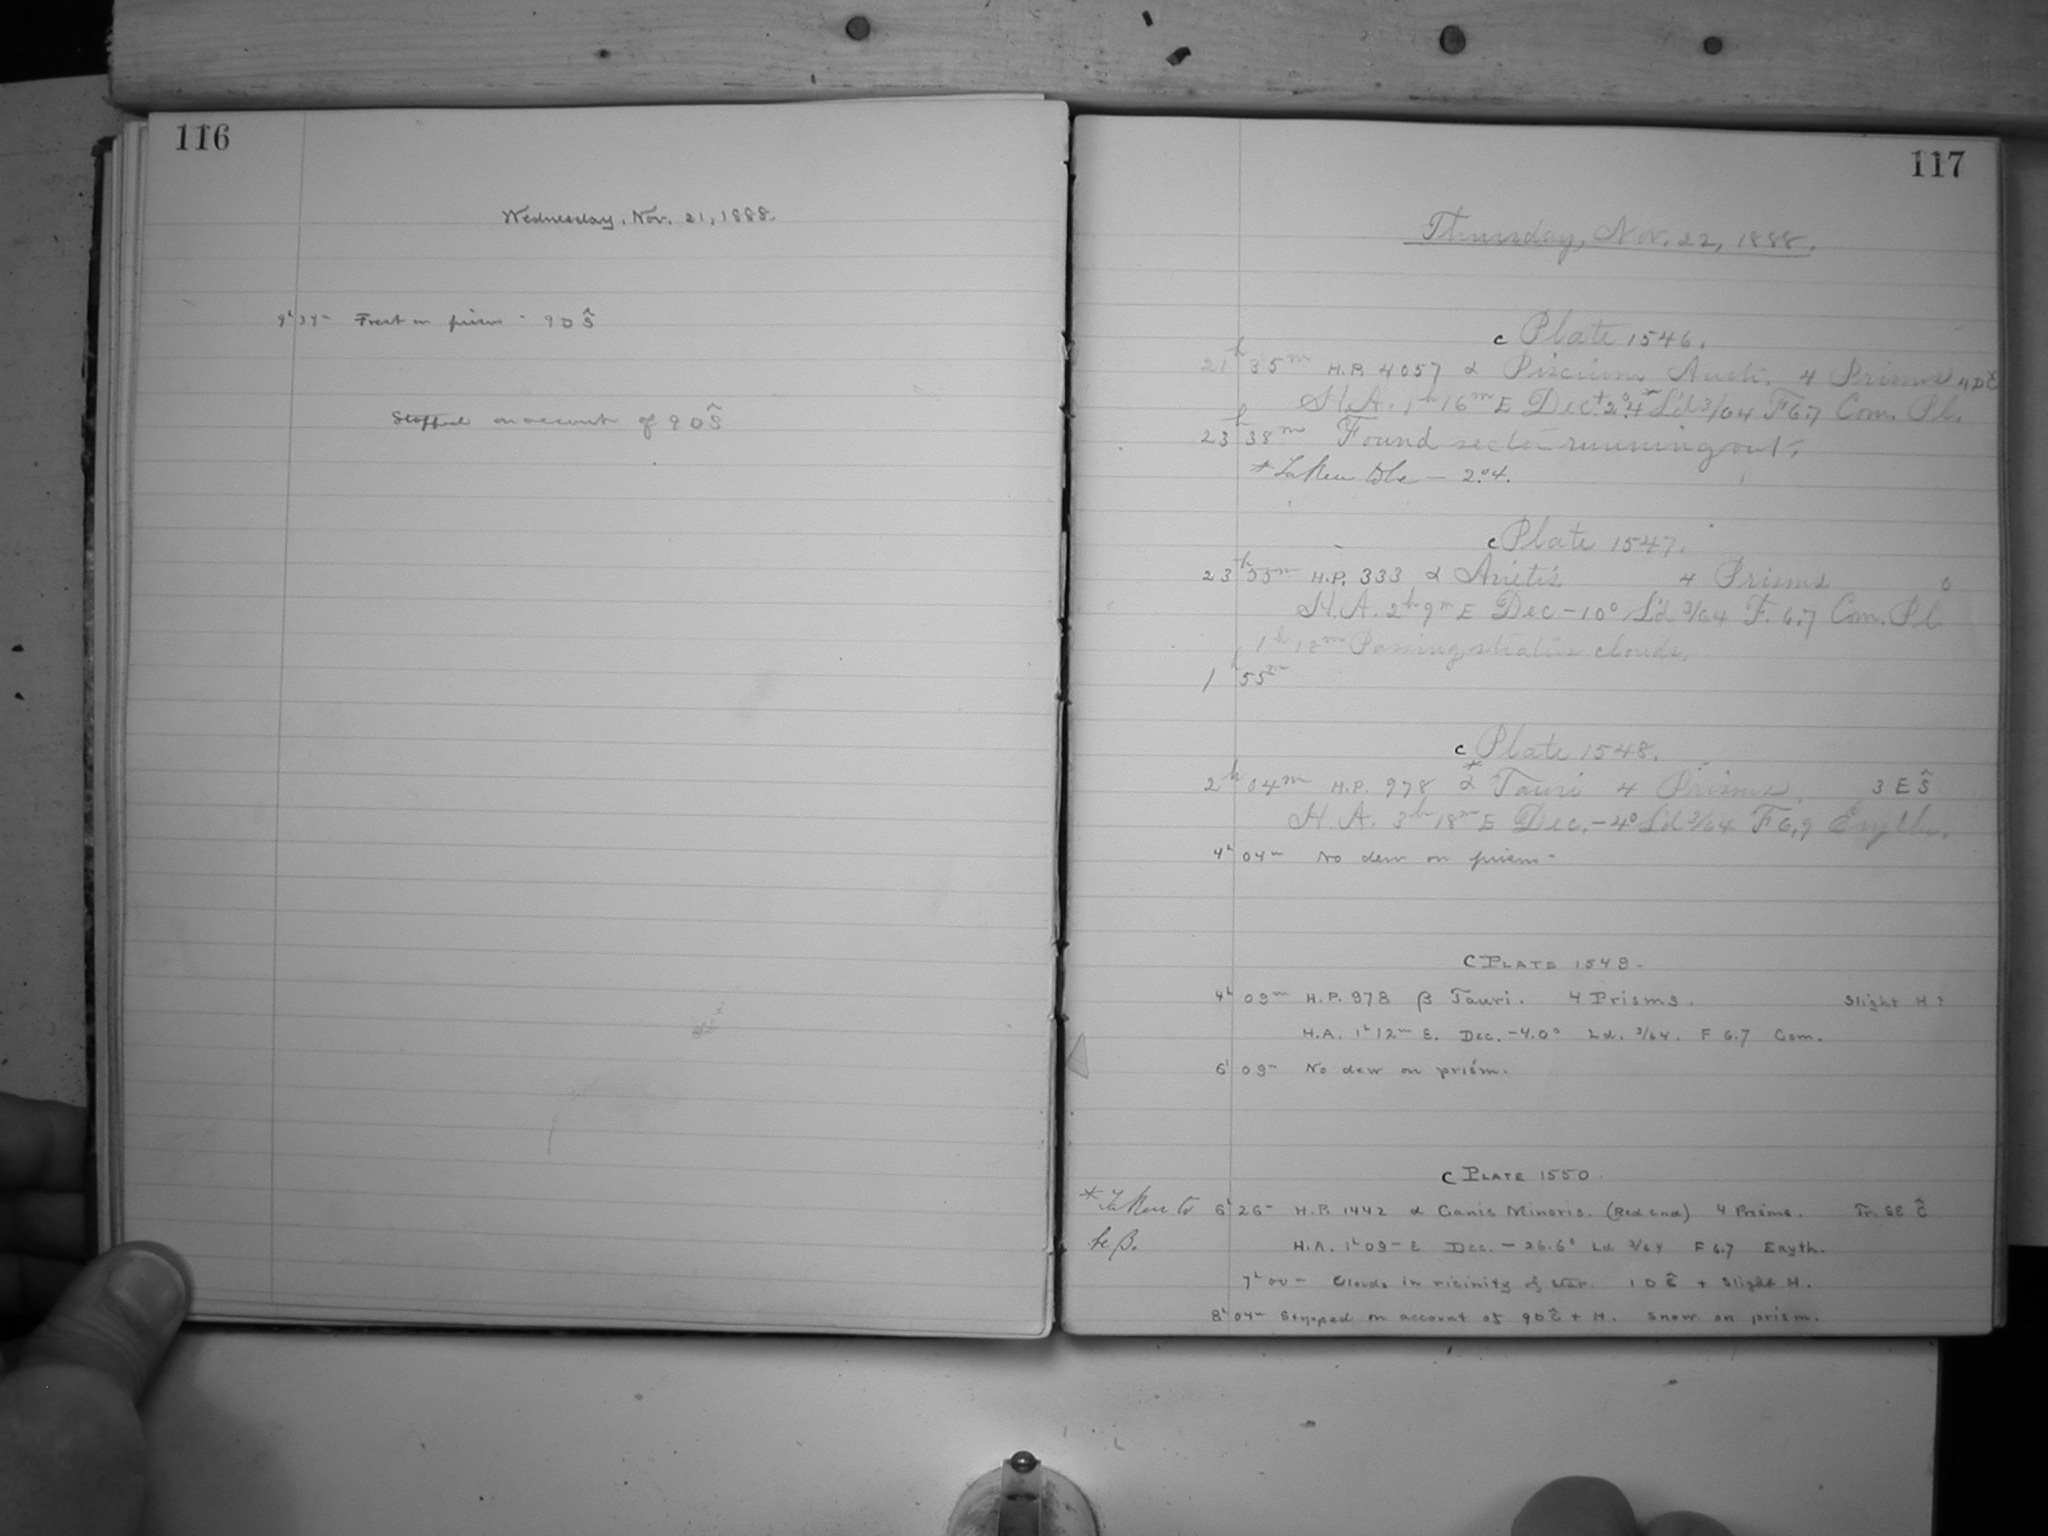 116
Wednesday, Nov. 21, 1888.
9h 34m Frost on prism - 9 D Ŝ
Stopped on account of 9 D Ŝ
117
Thursday, Nov. 22, 1888.
c Plate 1546.
21h 35m H.P. 4057 α Piscium Aust. 4 Prisms 4 D
H.A. 1h 16m E Dec. +2°.4* L'd 3/64 F 6.7 Com. Pl.
23h 38m Found sector running out.
* Taken to be - 2°.4.
c Plate 1547.
23h 55m H.P. 333 α Arietis 4 Prisms 0
H.A. 2h 9m E Dec - 10° L'd 3/64 F. 6.7 Com. Pl.
1h 18m Passing stratus clouds.
1h 55m
c Plate 1548.
2h 04m H.P. 978 α* Tauri 4 Prisms. 3 E Ŝ
H.A. 3h 18m E Dec. - 4° L'd 3/64 F 6.9 Eryth.
4h 04m No dew on prism -
C PLATE 1549.
4h 09m H.P. 978 β Tauri. 4 Prisms. Slight H?
H.A. 1h 12m E. Dec. -4.0° Ld. 3/64. F 6.7 Com.
6h 09m No dew on prism.
c PLATE 1550
* Taken to be β.
6h 26m H.P. 1442 α Canis Minoris. (Red end) 4 Prisms. Tr. SE Ĉ
H.A. 1h 09m E Dec. - 26.6° Ld 3/64 F 6.7 Eryth.
7h 00m Clouds in vicinity of star. 1 D Ĉ + slight H.
8h 04m Stopped on account of 9 D Ĉ + H. Snow on prism.